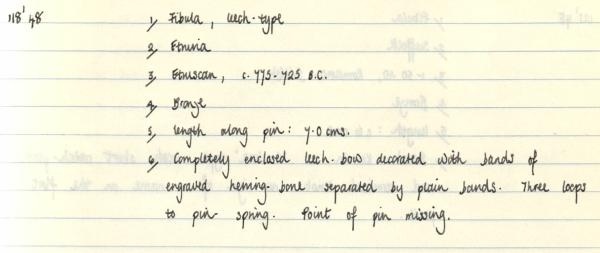 118' 48
1, Fibula, leech-type
2, Etruria
3, Etruscan, c. 775-725 B.C.
4, Bronze
5, length along pin: 7.0 cms.
6, Completely enclosed leech-bow decorated with bands of
engraved herring-bone separated by plain bands. Three loops
to pin-spring. Point of pin missing.